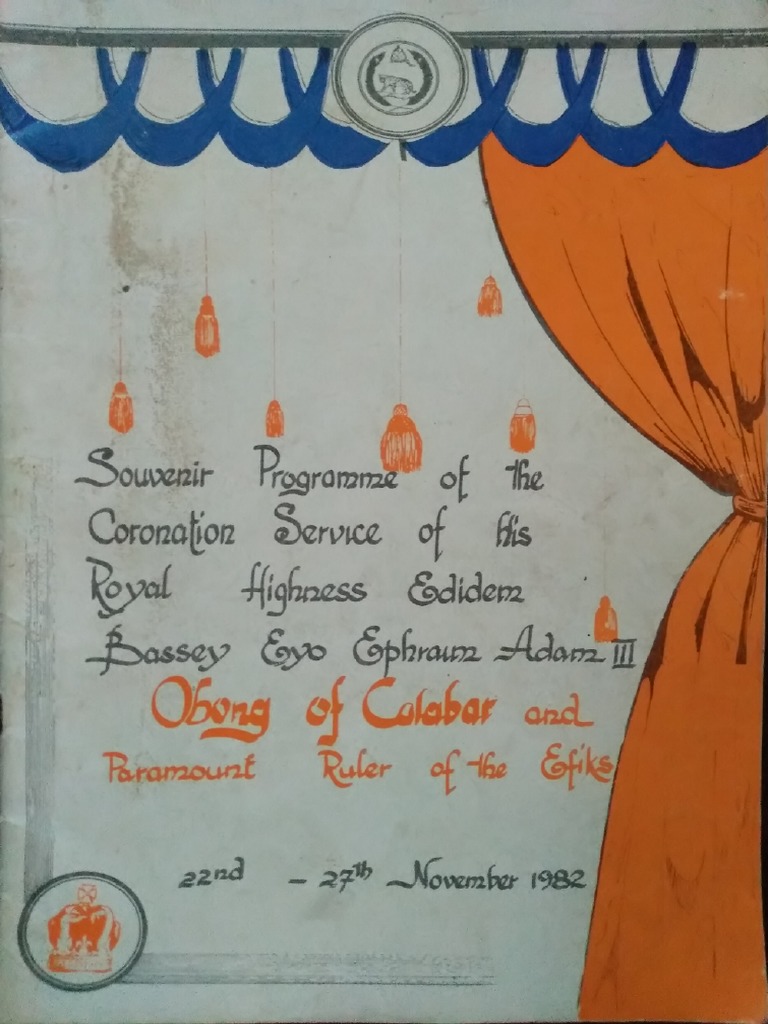 Souvenir Programme of the
Coronation Service of His
Royal Highness Edidem
Bassey Eyo Ephraim Adam III
Obong of Calabar and
Paramount Ruler of the Efiks
22nd - 27th November 1982